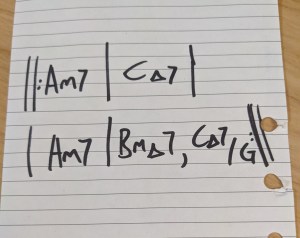 ||:Am7 | C△7 |
| Am7 | Bm△7, C△7/G :||